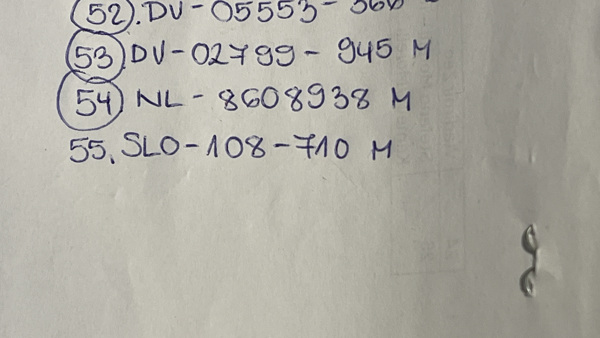 52. DV-05553-
53 DV-02799-945 M
54 NL-8608938 M
55. SLO-108-710 M